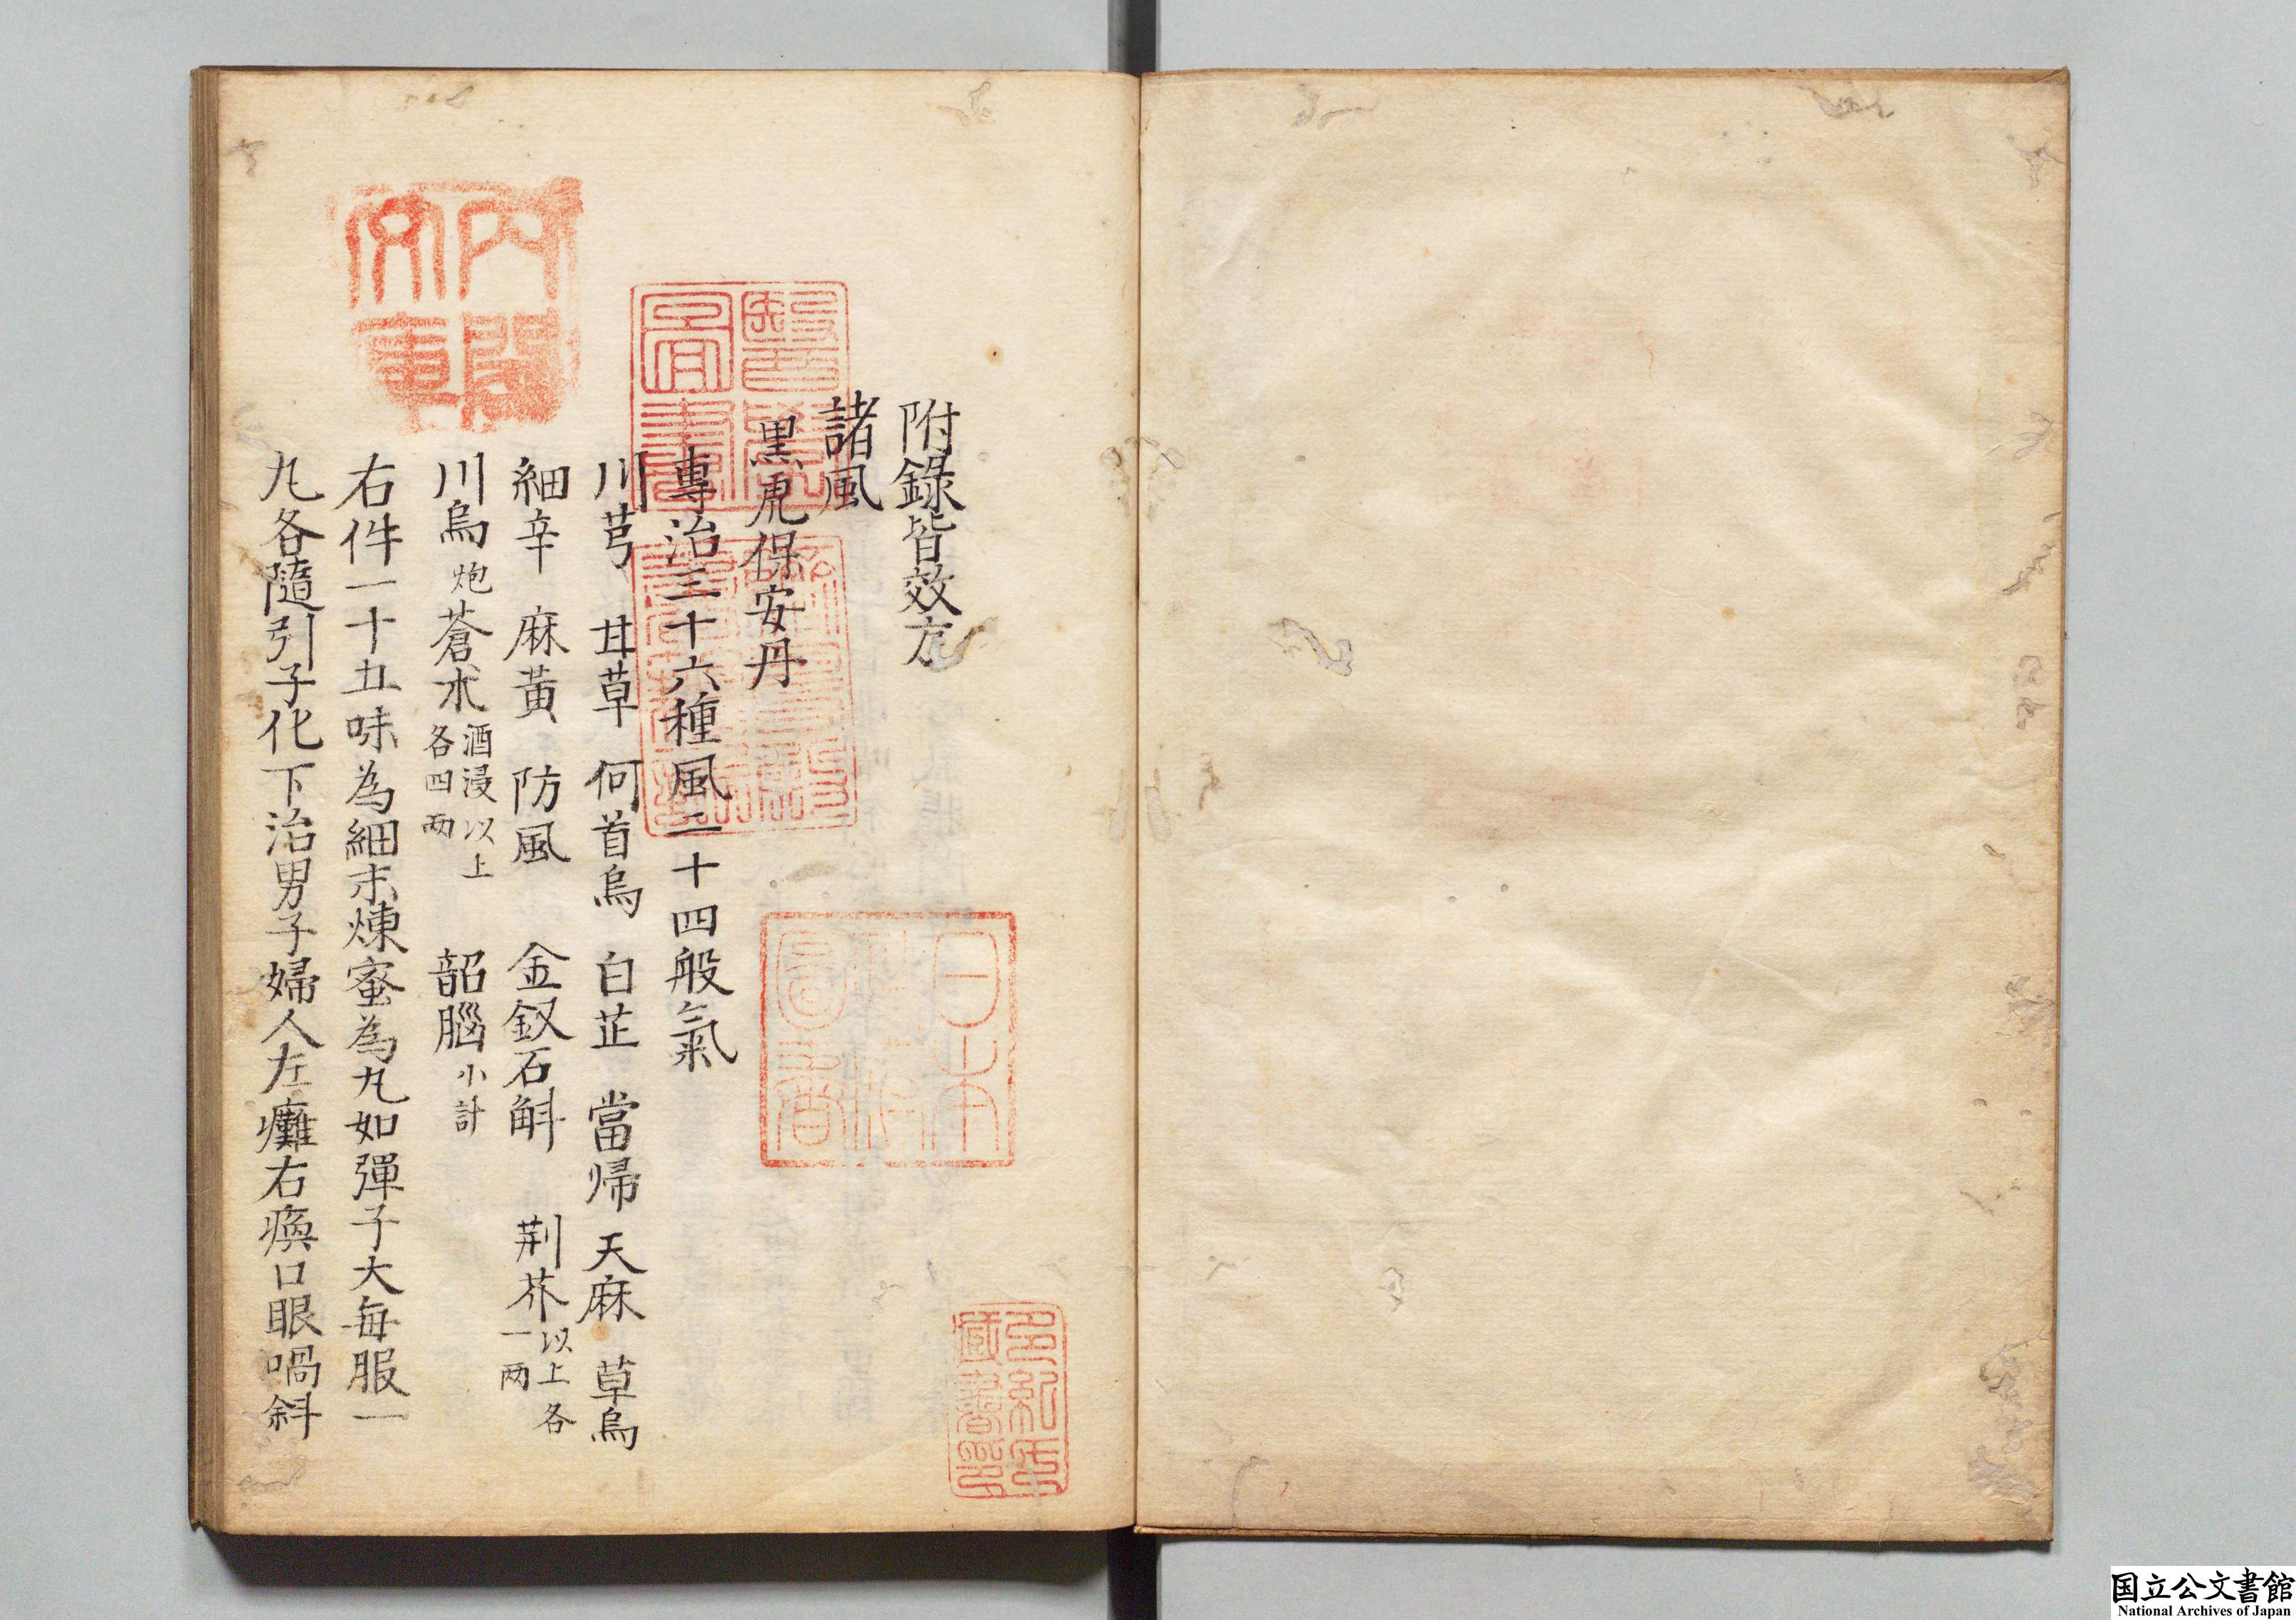 附錄皆效方
諸風
黑虎保安丹
專治三十六種風二十四般氣
川芎 甘草 何首烏 白芷 當歸 天麻 草烏
細辛 麻黃 防風 金釵石斛 荆芥以上各一兩
川烏炮 蒼朮酒浸以上各四兩 韶腦小計
右件一十五味為細末煉蜜為丸如彈子大每服一
丸各隨引子化下治男子婦人左癱右瘓口眼喎斜
內閣文庫
醫學圖書
日本政府圖書
多紀氏藏書印
国立公文書館
National Archives of Japan